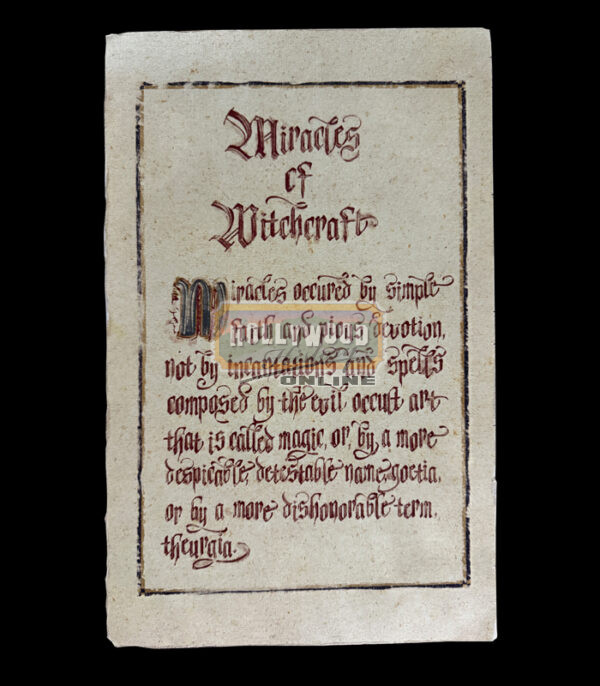 Miracles
of
Witchcraft
Miracles occured by simple
faith and pious devotion,
not by incantations and spells
composed by the evil occult art
that is called magic, or, by a more
despicable, detestable name, goetia,
or by a more dishonorable term,
theurgia.
HOLLYWOOD
ONLINE